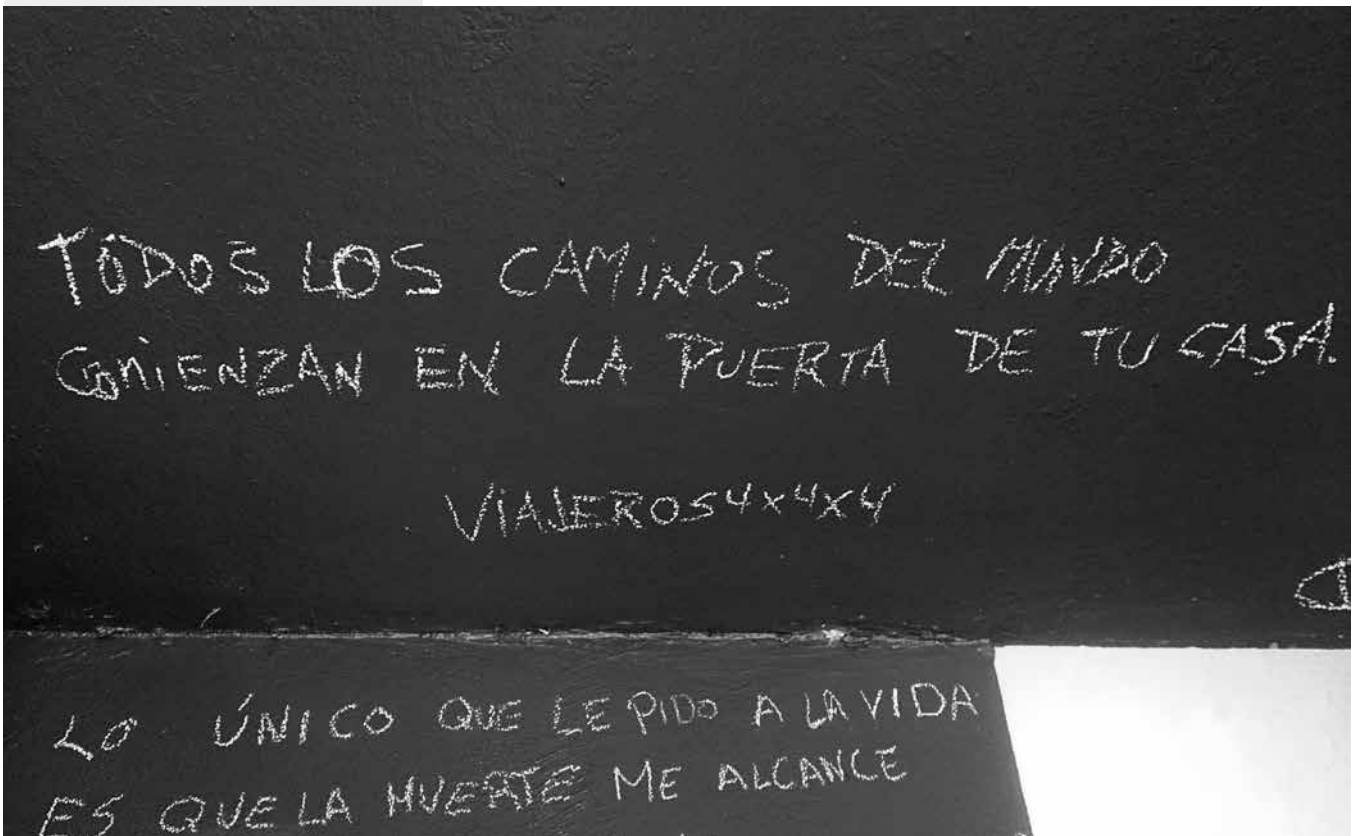 TODOS LOS CAMINOS DEL MUNDO
COMIENZAN EN LA PUERTA DE TU CASA.
VIAJEROS4X4X4
LO ÚNICO QUE LE PIDO A LA VIDA
ES QUE LA MUERTE ME ALCANCE